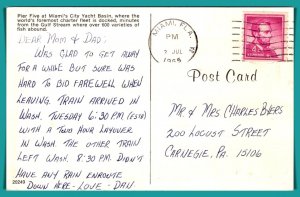 Pier Five at Miami's City Yacht Basin, where the
world's foremost charter fleet is docked, minutes
from the Gulf Stream where over 600 varieties of
fish abound.
DEAR MOM & DAD,
WAS GLAD TO GET AWAY
FOR A WHILE BUT SURE WAS
HARD TO BID FAREWELL WHEN
LEAVING. TRAIN ARRIVED IN
WASH. TUESDAY 6:30 P.M. (EST)
WITH A TWO HOUR LAYOVER
IN WASH THE OTHER TRAIN
LEFT WASH. 8:30 P.M. DIDN'T
HAVE ANY RAIN ENROUTE
DOWN HERE - LOVE - DAN
20249
MIAMI, FLA.
PM
2 JUL
Post Card
MR & MRS CHARLES BYERS
200 LOCUST STREET
CARNEGIE, PA. 15106